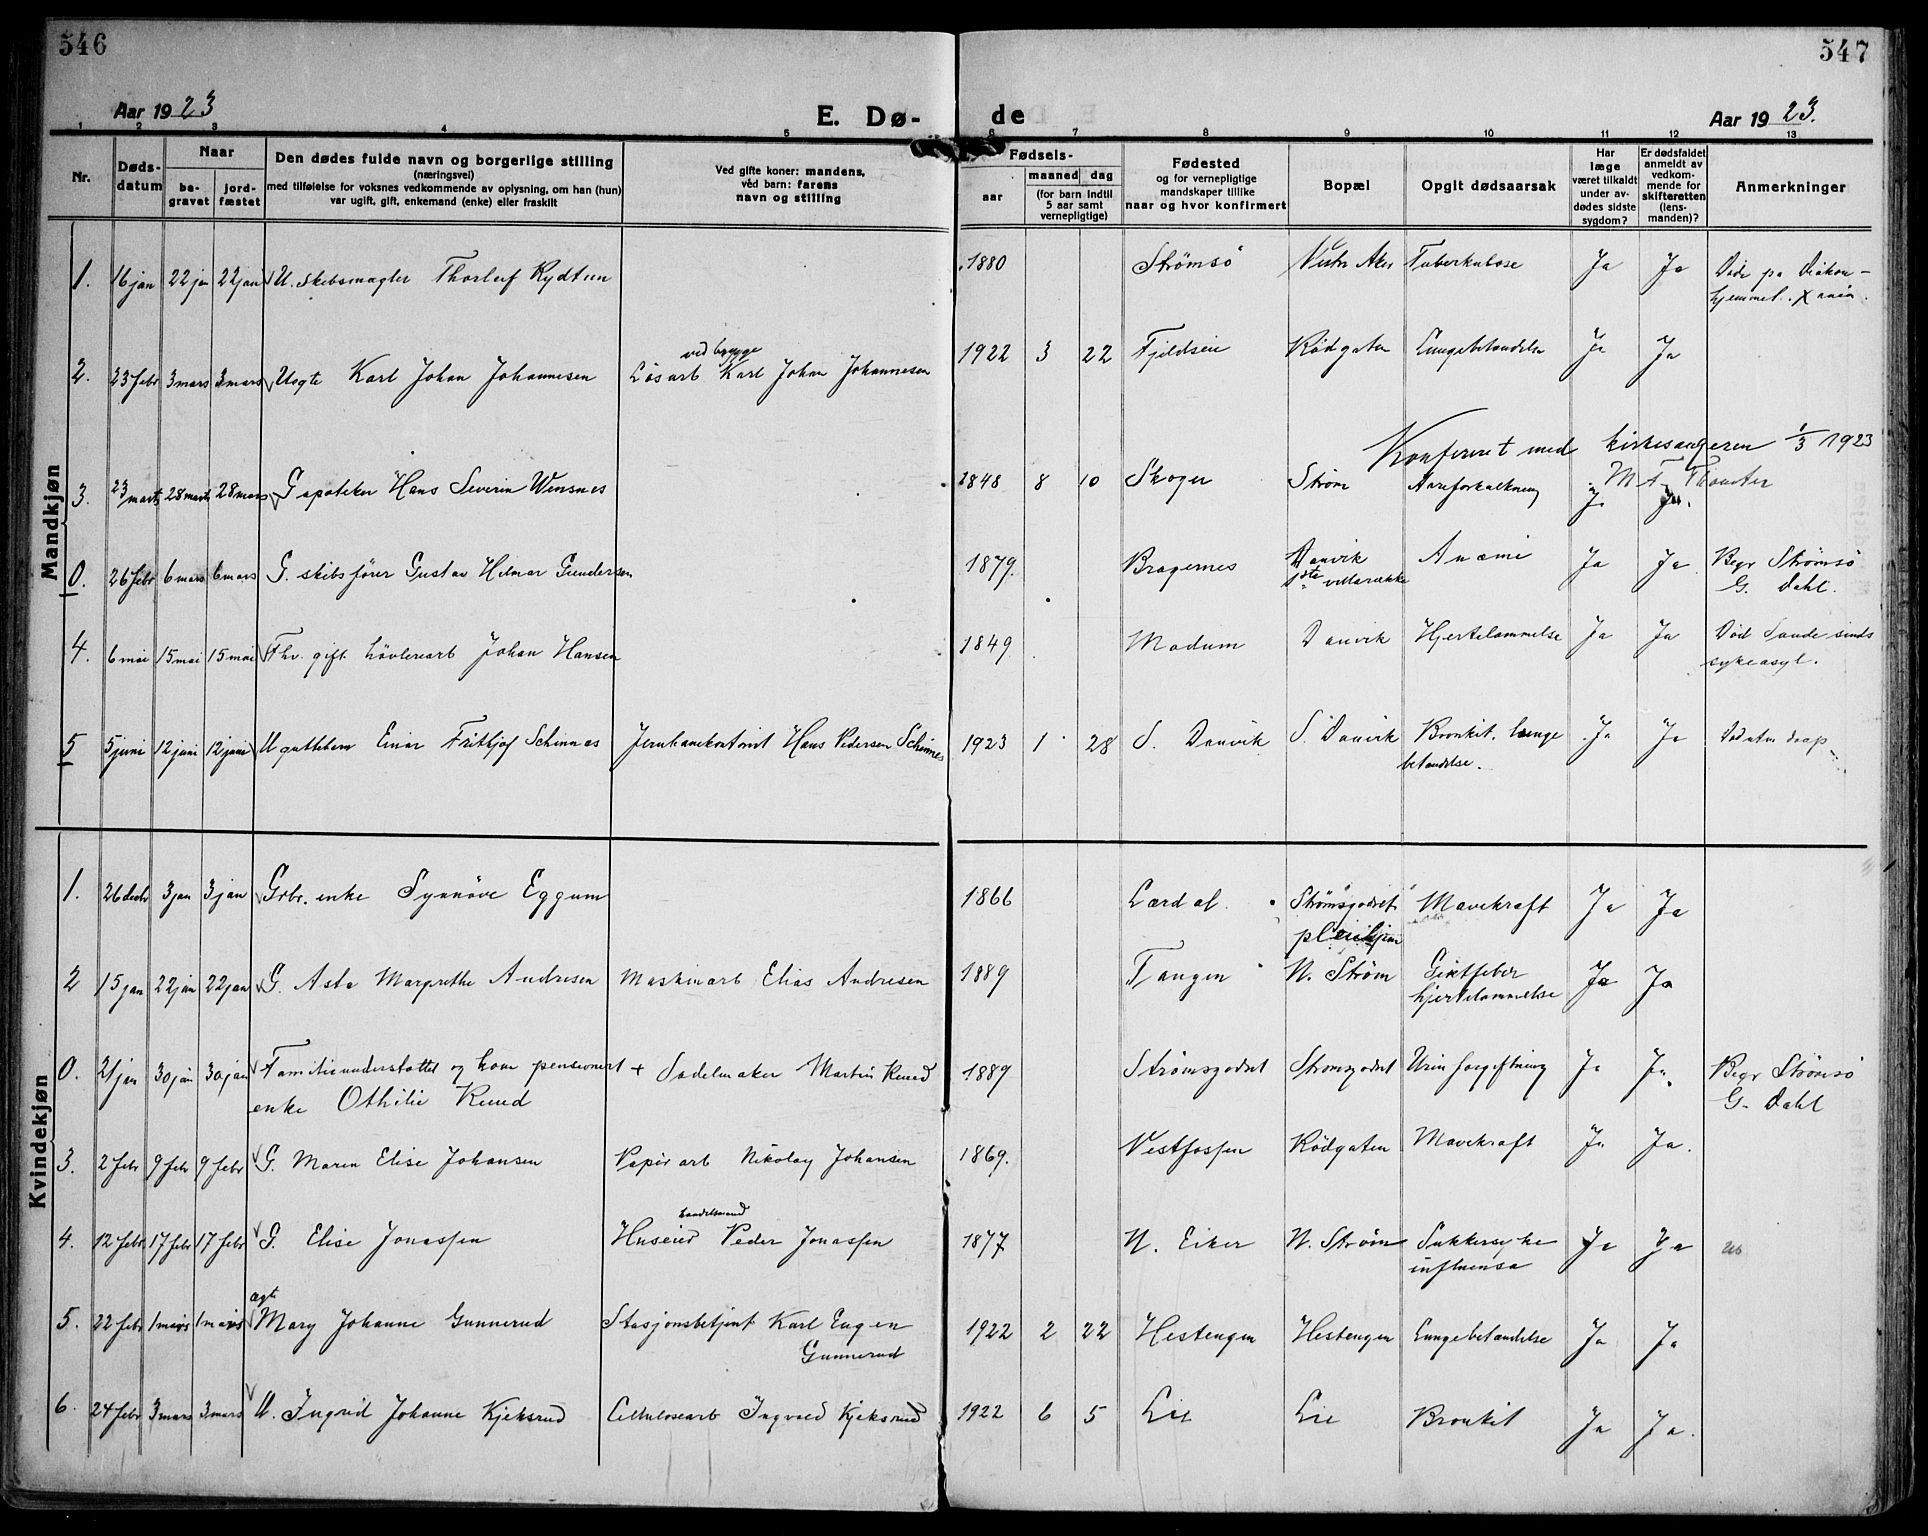 546
547
Aar 1923
E. Dø-
de
Aar 1923.
1 2 3 4 5 6 7 8 9 10 11 12 13
Nr.
Døds-
datum
Naar
be-
gravet
jord-
fæstet
Den dødes fulde navn og borgerlige stilling
(næringsvei)
med tilføielse for voksnes vedkommende av oplysning, om han (hun)
var ugift, gift, enkemand (enke) eller fraskilt
Ved gifte koner: mandens,
ved barn: farens
navn og stilling
Fødsels-
aar
maaned dag
(for barn indtil
5 aar samt
vernepligtige)
Fødested
og for vernepligtige
mandskaper tillike
naar og hvor konfirmert
Bopæl
Opgit dødsaarsak
Har
læge
været tilkaldt
under av-
dødes sidste
sygdom?
Er dødsfaldet
anmeldt av
vedkom-
mende for
skifteretten
(lens-
manden)?
Anmerkninger
Mandkjøn
1. 16 jan 22 jan 22 jan U. skibsmægler Thorleif Rydtun 1880 Strømsø Vestre Aker Tuberkulose Ja Ja Død på Diakon-
hjemmet. Xania.
ved brygge
2. 23 febr 3 mars 3 mars Uegte Karl Johan Johannesen Løsarb Karl Johan Johannesen 1922 3 22 Fjeldseie Rødgaten Lungebetændelse Ja Ja
Konferert med kirkesangeren 1/3 1923
3. 23 marts 28 marts 28 mars G apoteker Hans Severin Wensnes 1848 8 10 Skoger Strøm Aareforkalkning Ja Ja.
0. 26 febr 6 mars 6 mars G. skibsfører Gustav Hilmar Gundersen 1879. Bragernes Danvik Anæmi Ja Ja Begr Strømsø
villarække G. Dahl.
4. 6 mai 15 mai 15 mai Fhv. gift høvlerarb Johan Hansen 1849 Modum Danvik Hjertelammelse Ja Ja Død Sande sinds
sykeasyl.
5 5 juni 12 juni 12 juni U guttebarn Einar Fritkjof Schinnes Jernbanekontorist Hans Pedersen Schinnes 1923 1 28 S. Danvik S. Danvik Bronkit. lunge Ja Ja
betændelse.
Kvindekjøn
1. 26 decbr 3 jan 3 jan Grbr. enke Synnøve Eggum 1866 Lærdal Strømsgodset Mavekræft Ja Ja
pleiehjem
2 15 jan 22 jan 22 jan G. Asta Margrethe Andresen Maskinarb Elias Andresen 1889 Tangen N. Strøm Giktfeber Ja Ja
hjertelammelse
0. 21 jan 30 jan 30 jan Familieunderstøttet og kom pensionert + Sadelmaker Martin Ruud 1889 Strømsgodset Strømsgodset Urinforgiftning Ja Ja Begr Strømsø
enke Othilie Ruud G. Dahl
3. 2 febr 9 febr 9 febr G. Maren Elise Johansen Papirarb Nikolay Johansen 1869. Vestfossen Rødgaten Mavekræft Ja Ja.
4. 12 febr 17 febr 17 febr G. Elise Jonassen Huseier Peder Jonassen 1877 N. Eiker N. Strøm Sukkersyke Ja Ja
influensa
ægte
5. 22 febr 1 mars 1 mars Mary Johanne Gunnerud Stasjonsbetjent Karl Eugen 1922 2 22 Hestengen Hestengen Lungebetændelse Ja Ja
Gunnerud
6. 24 febr 3 mars 3 mars U. Ingrid Johanne Kjeksrud Cellulosearb Ingvald Kjeksrud 1922 6 5 Lie Lie Bronkit Ja Ja.